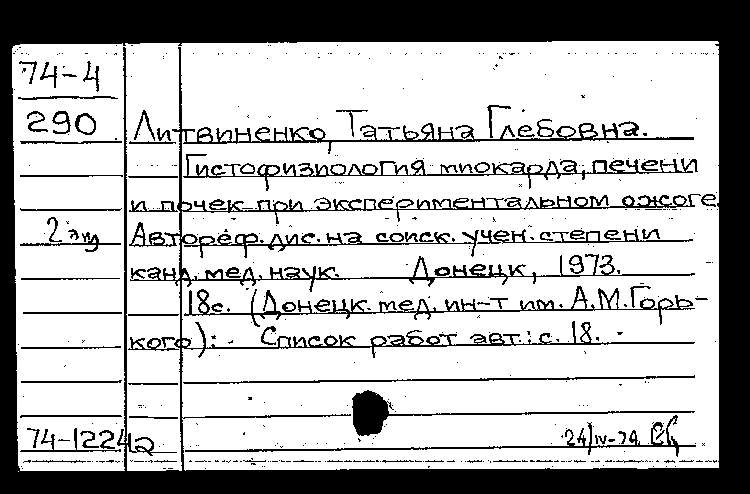 74-4
290 Литвиненко, Татьяна Глебовна.
Гистофизиология миокарда, печени
и почек при экспериментальном ожоге.
2 экз Автореф. дис. на соиск. учен. степени
канд. мед. наук. Донецк, 1973.
18с. (Донецк. мед. ин-т им. А.М.Горь-
кого). Список работ авт.: с. 18.
74-12242 24/IV-74